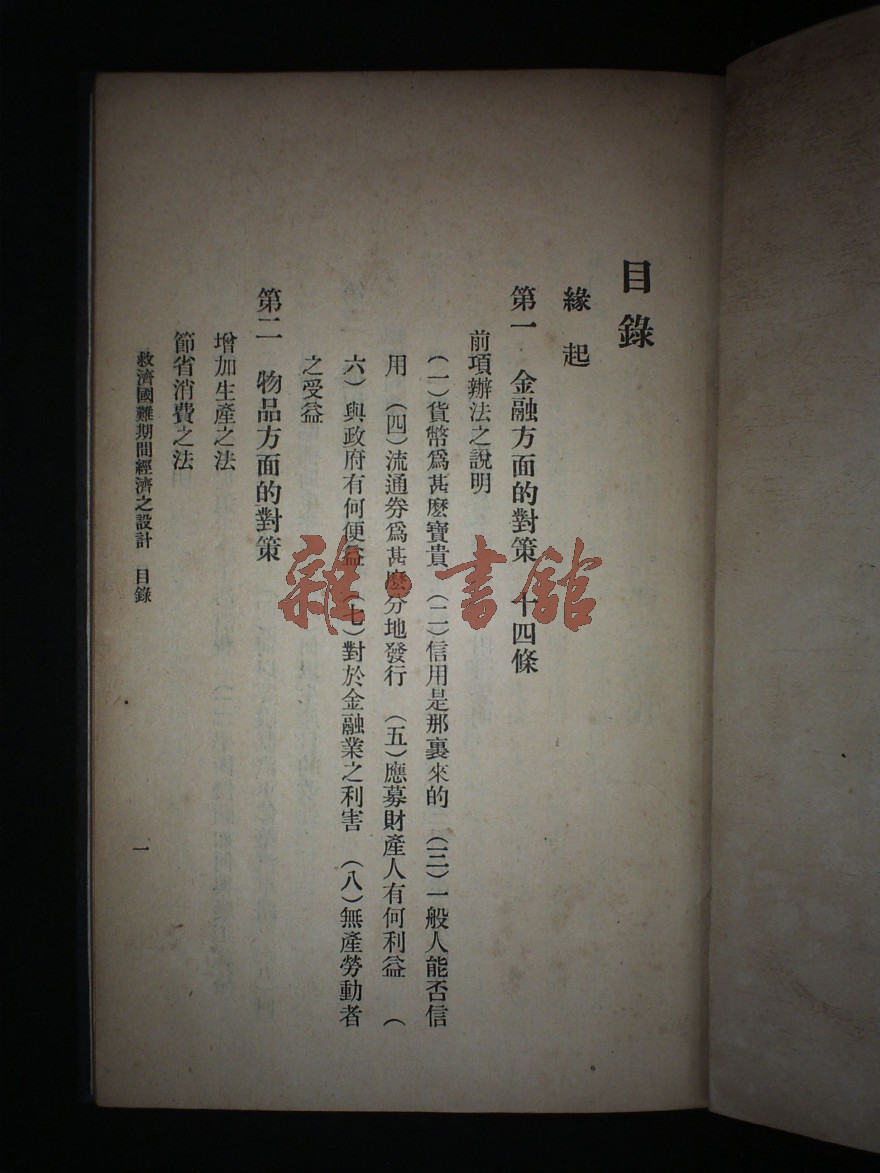 目錄
緣起
第一 金融方面的對策 十四條
前項辦法之說明
（一）貨幣爲甚麼寶貴 （二）信用是那裏來的 （三）一般人能否信
用 （四）流通劵爲甚麼分地發行 （五）應募財產人有何利益 （
六）與政府有何便益 （七）對於金融業之利害 （八）無產勞動者
之受益
第二 物品方面的對策
增加生產之法
節省消費之法
救濟國難期間經濟之設計 目錄
一
雜·書館